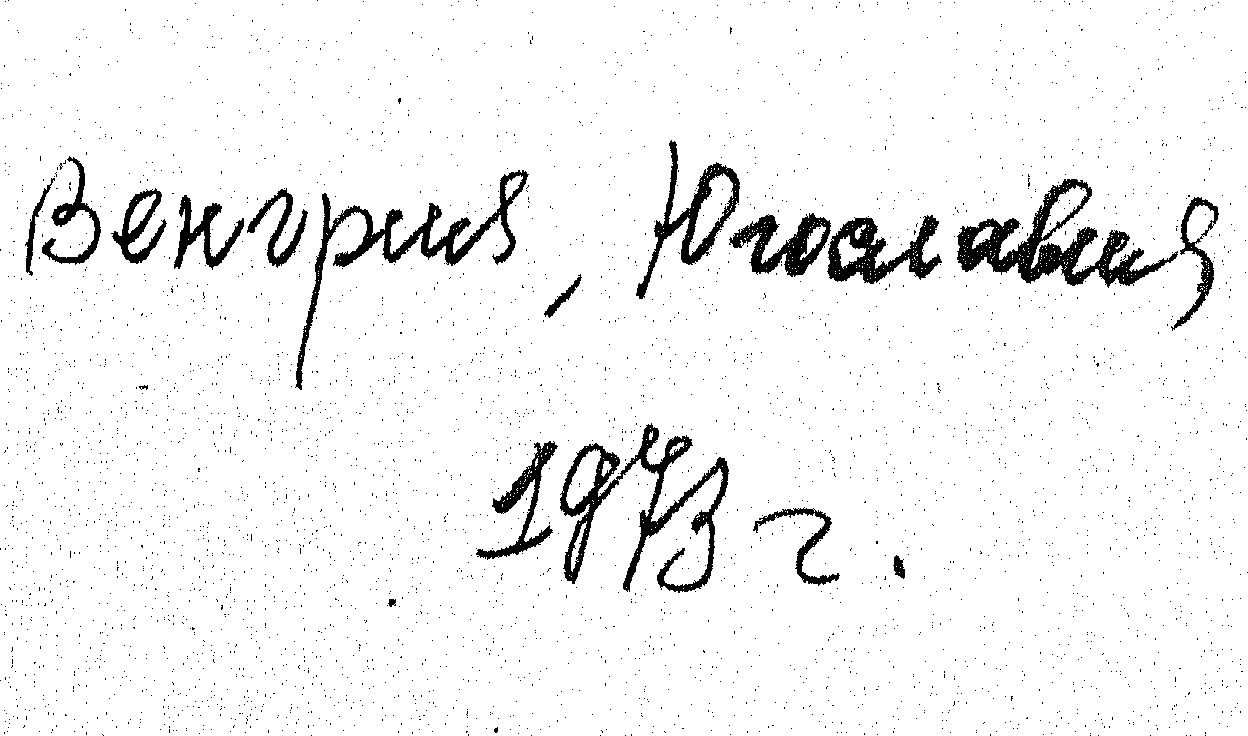 Венгрия, Югославия
1973 г.